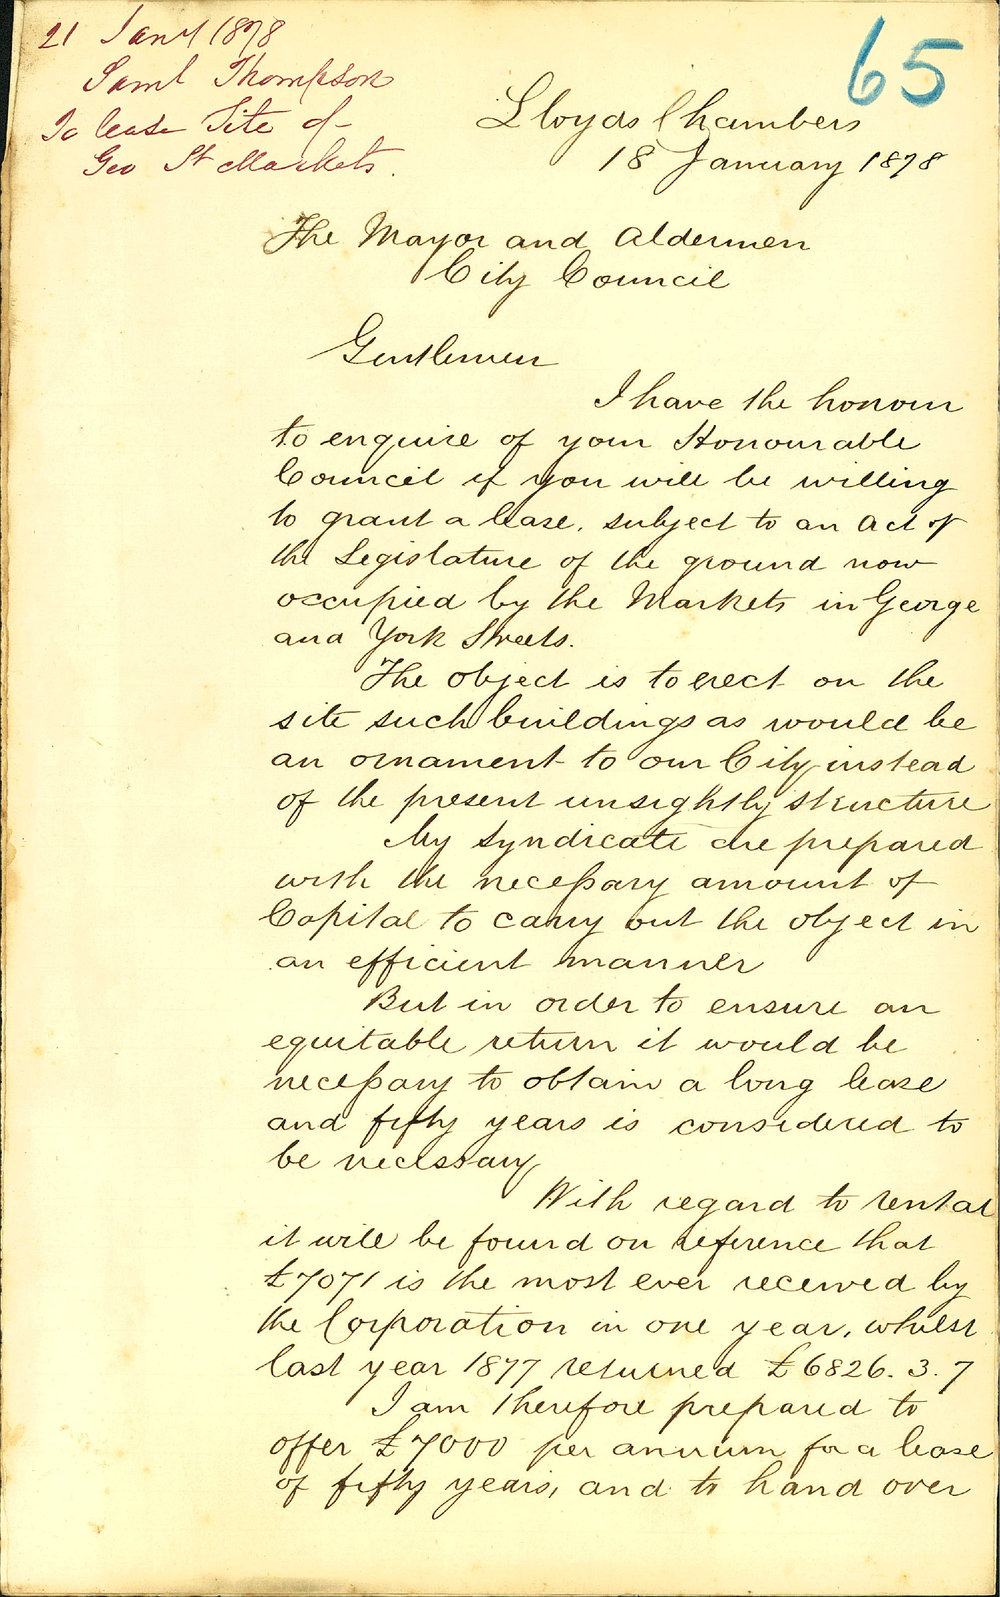 21 Jany 1878
Saml Thompson
To lease Site of
Geo St Markets.
65
Lloyds Chambers
18 January 1878
The Mayor and Aldermen
City Council
Gentlemen
I have the honour
to enquire of your Honourable
Council if you will be willing
to grant a lease, subject to an Act of
the Legislature of the ground now
occupied by the Markets in George
and York Streets.
The object is to erect on the
site such buildings as would be
an ornament to our City instead
of the present unsightly structure
My Syndicate are prepared
with the necessary amount of
Capital to carry out the object in
an efficient manner
But in order to ensure an
equitable return it would be
necessary to obtain a long lease
and fifty years is considered to
be necessary
With regard to rental
it will be found on reference that
£7071 is the most ever received by
the Corporation in one year, whilst
last year 1877 returned £6826.3.7
I am therefore prepared to
offer £7000 per annum for a lease
of fifty years, and to hand over